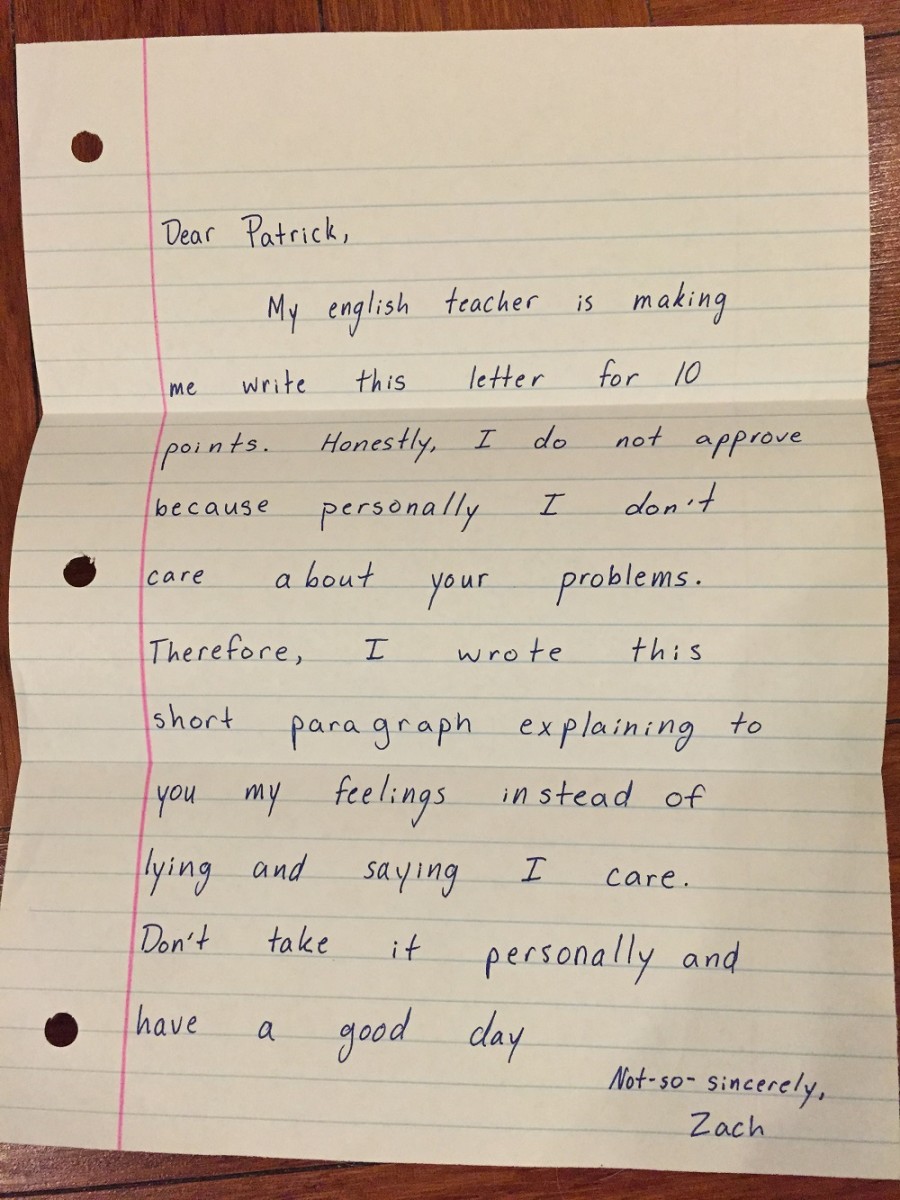 Dear Patrick,
My english teacher is making
me write this letter for 10
points. Honestly, I do not approve
because personally I don't
care about your problems.
Therefore, I wrote this
short paragraph explaining to
you my feelings instead of
lying and saying I care.
Don't take it personally and
have a good day
Not-so-sincerely,
Zach